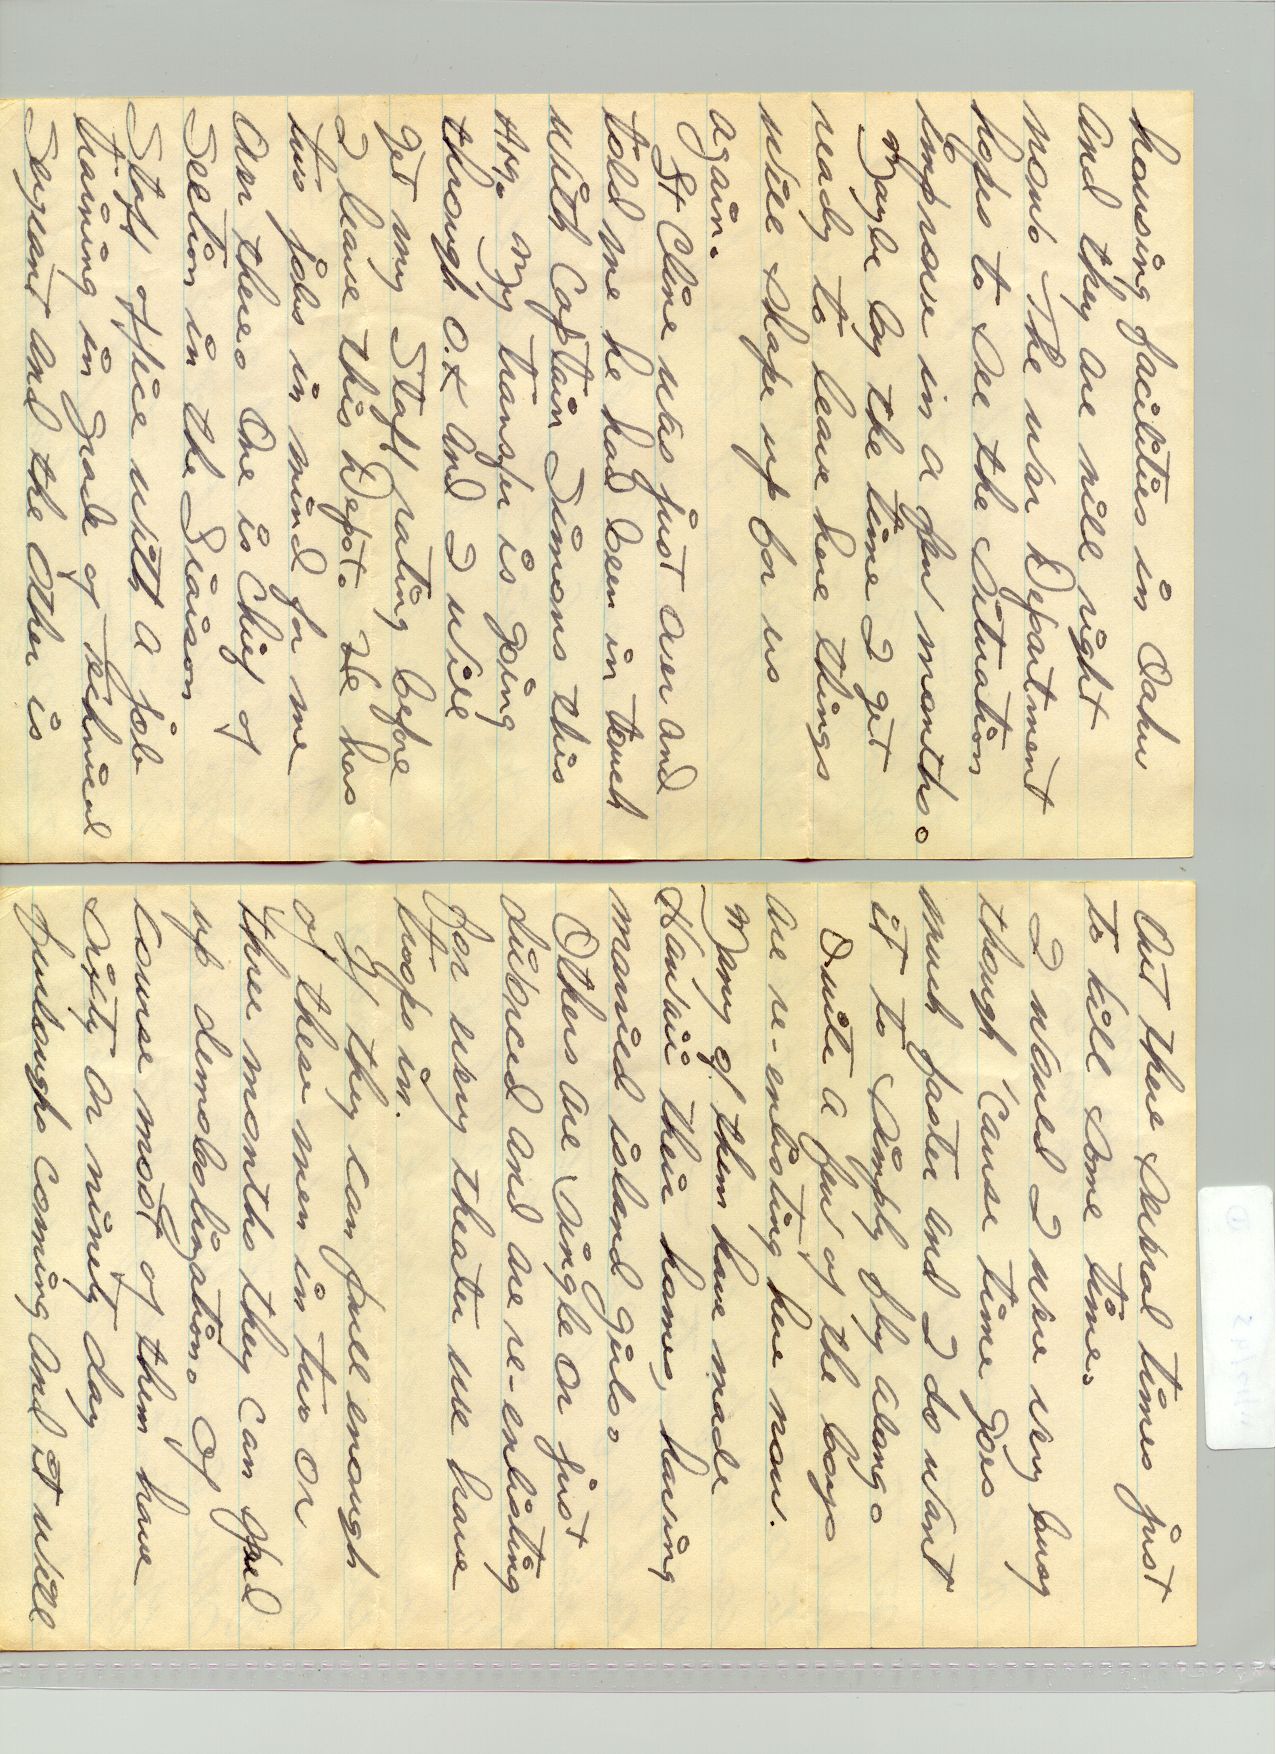 housing facilities in Oahu
and they are nill right
now. The war Department
hopes to see the situation
improve in a few months.
Maybe by the time I get
ready to leave here things
will shape up for us
again.
Lt Cline was just over and
told me he had been in touch
with Captain Simons this
My transfer is going
through O.K and I will
get my Staff rating before
I leave this Depot. He has
two jobs in mind for me
over there. One is Chief of
Section in the Liaison
Staff office with a job
training in grade of Technical
Sergeant and the other is
out there several times just
to kill some time.
I wished I were very busy
though 'cause time goes
much faster and I do want
it to simply fly along.
Quite a few of the boys
are re-enlisting here now.
Many of them have made
Hawaii their home, having
married island girls.
Others are single or just
divorced and are re-enlisting
for every theater we have
troops in.
If they can full enough
of these men in two or
three months they can speed
up demobolization. Of
course most of them have
sixty or ninety day
furloughs coming and it will